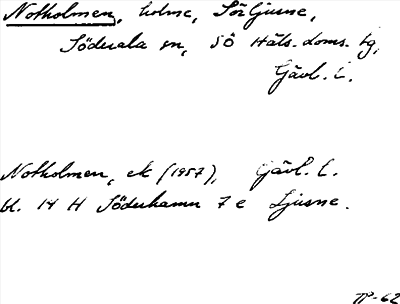 Notholmen, holme, Sör Ljusne,
Söderala sn, SÖ Häls. doms. tg,
Gävl. L.
Notholmen, ek (1957), Gävl. L.
bl. 14 H Söderhamn 7 e Ljusne.
TP-62